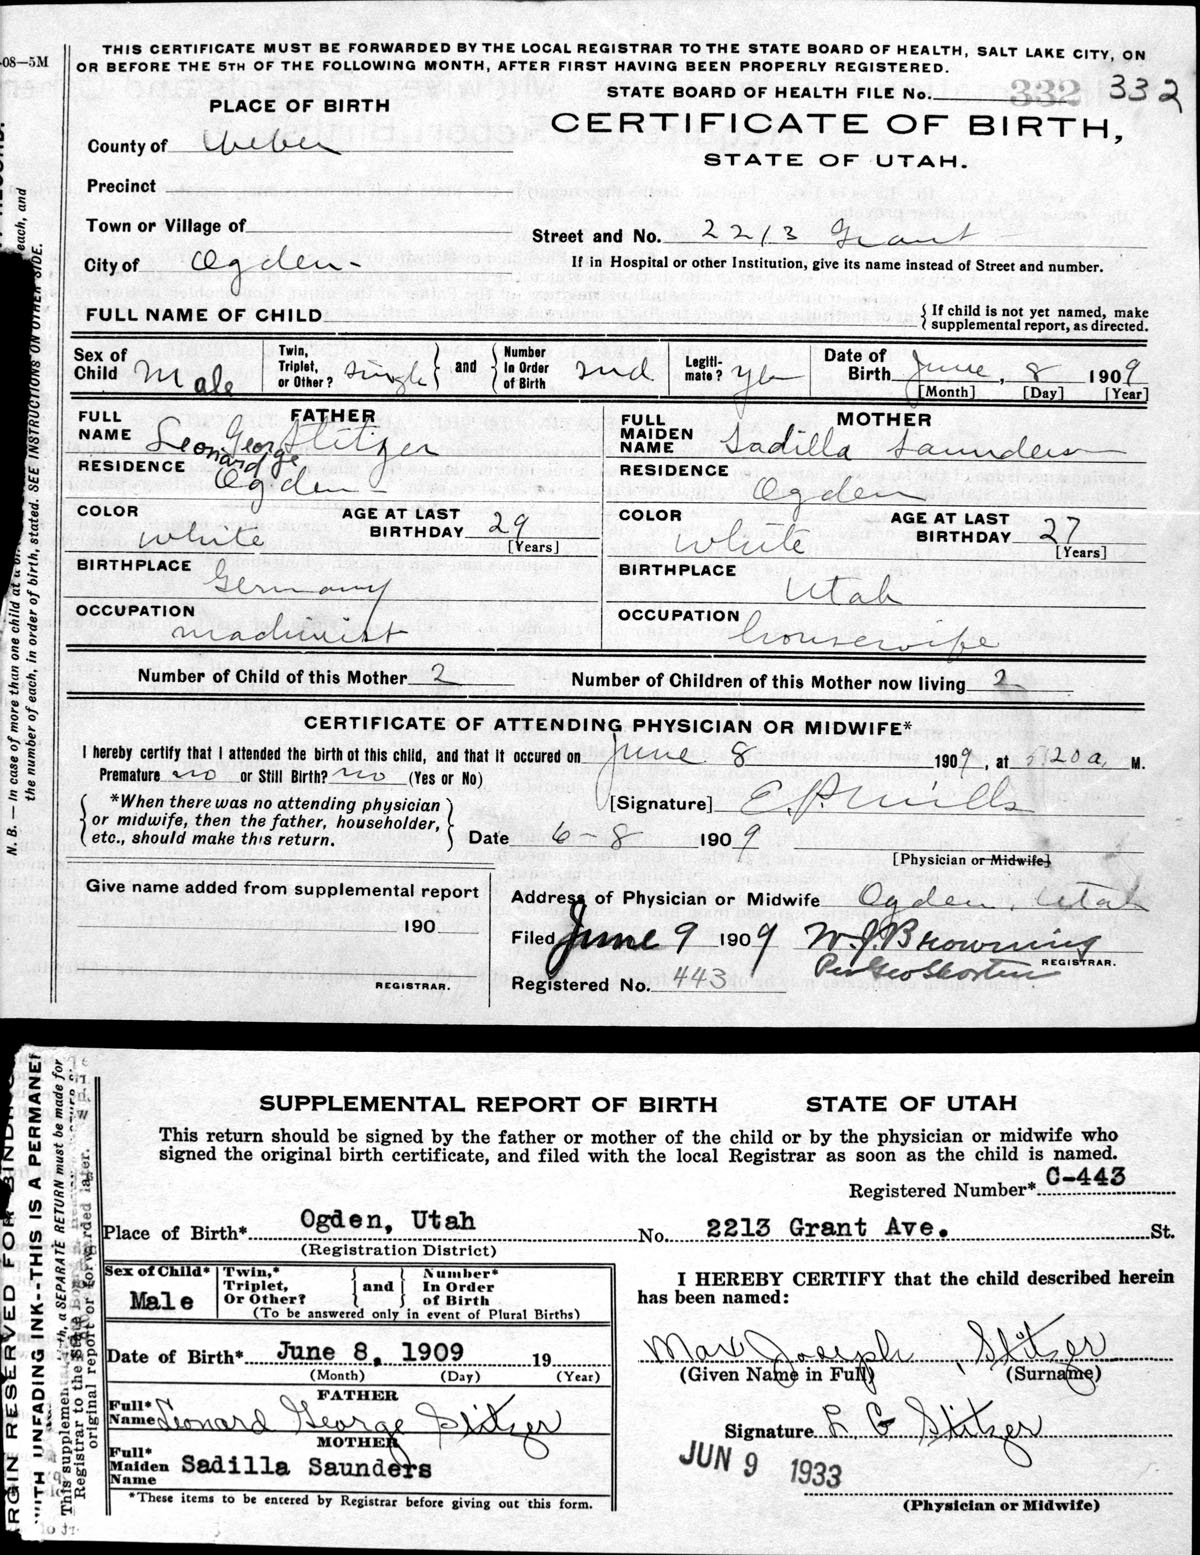 -08—5M
THIS CERTIFICATE MUST BE FORWARDED BY THE LOCAL REGISTRAR TO THE STATE BOARD OF HEALTH, SALT LAKE CITY, ON
OR BEFORE THE 5TH OF THE FOLLOWING MONTH, AFTER FIRST HAVING BEEN PROPERLY REGISTERED.
STATE BOARD OF HEALTH FILE No. 332 332
PLACE OF BIRTH
CERTIFICATE OF BIRTH,
STATE OF UTAH.
County of Weber
Precinct
Town or Village of
Street and No. 2213 Grant
City of Ogden
If in Hospital or other Institution, give its name instead of Street and number.
FULL NAME OF CHILD
{ If child is not yet named, make
supplemental report, as directed.
Sex of Child Male
Twin, Triplet, or Other? single } and { Number In Order of Birth 2nd
Legiti-mate? yes
Date of Birth June, 8 1909
[Month] [Day] [Year]
FATHER
FULL NAME Leonard George Stitzer
MOTHER
FULL MAIDEN NAME Sadilla Saunders
RESIDENCE Ogden
RESIDENCE Ogden
COLOR White AGE AT LAST BIRTHDAY 29 [Years]
COLOR White AGE AT LAST BIRTHDAY 27 [Years]
BIRTHPLACE Germany
BIRTHPLACE Utah
OCCUPATION machinist
OCCUPATION housewife
Number of Child of this Mother 2 Number of Children of this Mother now living 2
CERTIFICATE OF ATTENDING PHYSICIAN OR MIDWIFE*
I hereby certify that I attended the birth of this child, and that it occured on June 8 1909, at 5:20 a. M.
Premature no or Still Birth? no (Yes or No)
{ *When there was no attending physician
or midwife, then the father, householder,
etc., should make this return. }
[Signature] E. P. Mills
Date 6-8 1909
[Physician or Midwife]
Give name added from supplemental report
190
REGISTRAR.
Address of Physician or Midwife Ogden, Utah
Filed June 9 1909 W. J. Browning
REGISTRAR.
Registered No. 443
N. B. — In case of more than one child at a
each, and
the number of each, in order of birth, stated. SEE INSTRUCTIONS ON OTHER SIDE.
SUPPLEMENTAL REPORT OF BIRTH STATE OF UTAH
This return should be signed by the father or mother of the child or by the physician or midwife who
signed the original birth certificate, and filed with the local Registrar as soon as the child is named.
Registered Number* C-443
Place of Birth* Ogden, Utah No. 2213 Grant Ave. St.
(Registration District)
Sex of Child* Male
Twin,* Triplet, Or Other? } and { Number* In Order of Birth
(To be answered only in event of Plural Births)
I HEREBY CERTIFY that the child described herein
has been named:
Max Joseph, Stitzer
(Given Name in Full) (Surname)
Date of Birth* June 8, 1909 19
(Month) (Day) (Year)
FATHER
Full* Name Leonard George Stitzer
Signature L G Stitzer
MOTHER
Full* Maiden Name Sadilla Saunders
JUN 9 1933
*These items to be entered by Registrar before giving out this form.
(Physician or Midwife)
RGIN RESERVED FOR BINDING
WITH UNFADING INK--THIS IS A PERMANE
This supplemental
a SEPARATE RETURN must be made for
Registrar to the
original report or forwarded later.